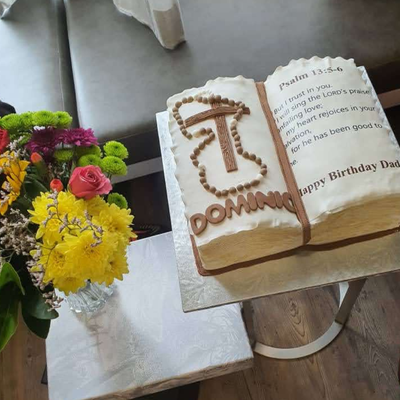 DOMINIC
Psalm 13:5-6
But I trust in you.
I will sing the LORD's praise,
unfailing love;
my heart rejoices in your
salvation.
for he has been good to
me.
Happy Birthday Dad